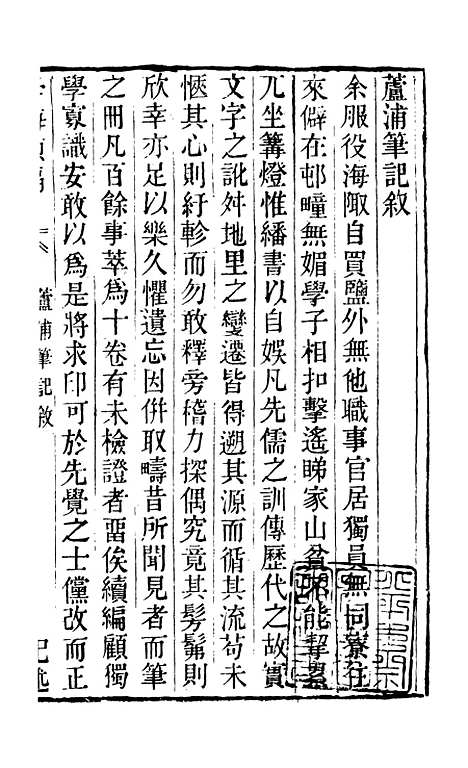 蘆浦筆記敘
余服役海陬自買鹽外無他職事官居獨員無同寮往
來僻在邨疃無媚學子相扣擊遙睇家山貧不能挈累
兀坐篝燈惟繙書以自娛凡先儒之訓傳歷代之故實
文字之訛舛地里之變遷皆得遡其源而循其流苟未
愜其心則紆軫而勿敢釋旁稽力探偶究竟其髣髴則
欣幸亦足以樂久懼遺忘因併取疇昔所聞見者而筆
之冊凡百餘事萃為十卷有未檢證者畱俟續編顧獨
學寡識安敢以爲是將求印可於先覺之士儻改而正
蘆浦筆記敘